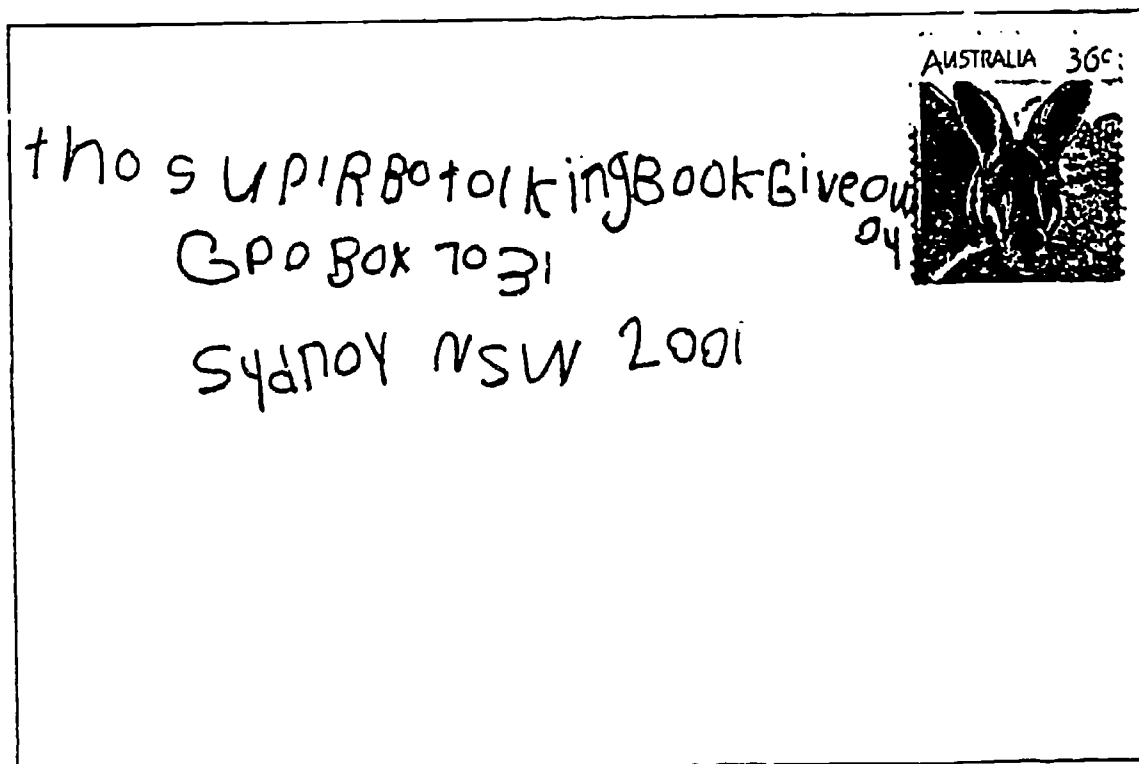 AUSTRALIA 36c
tho SUPIRBotolkingBookGiveou
oy
GPO BOX 7031
SydnoY NSW 2001